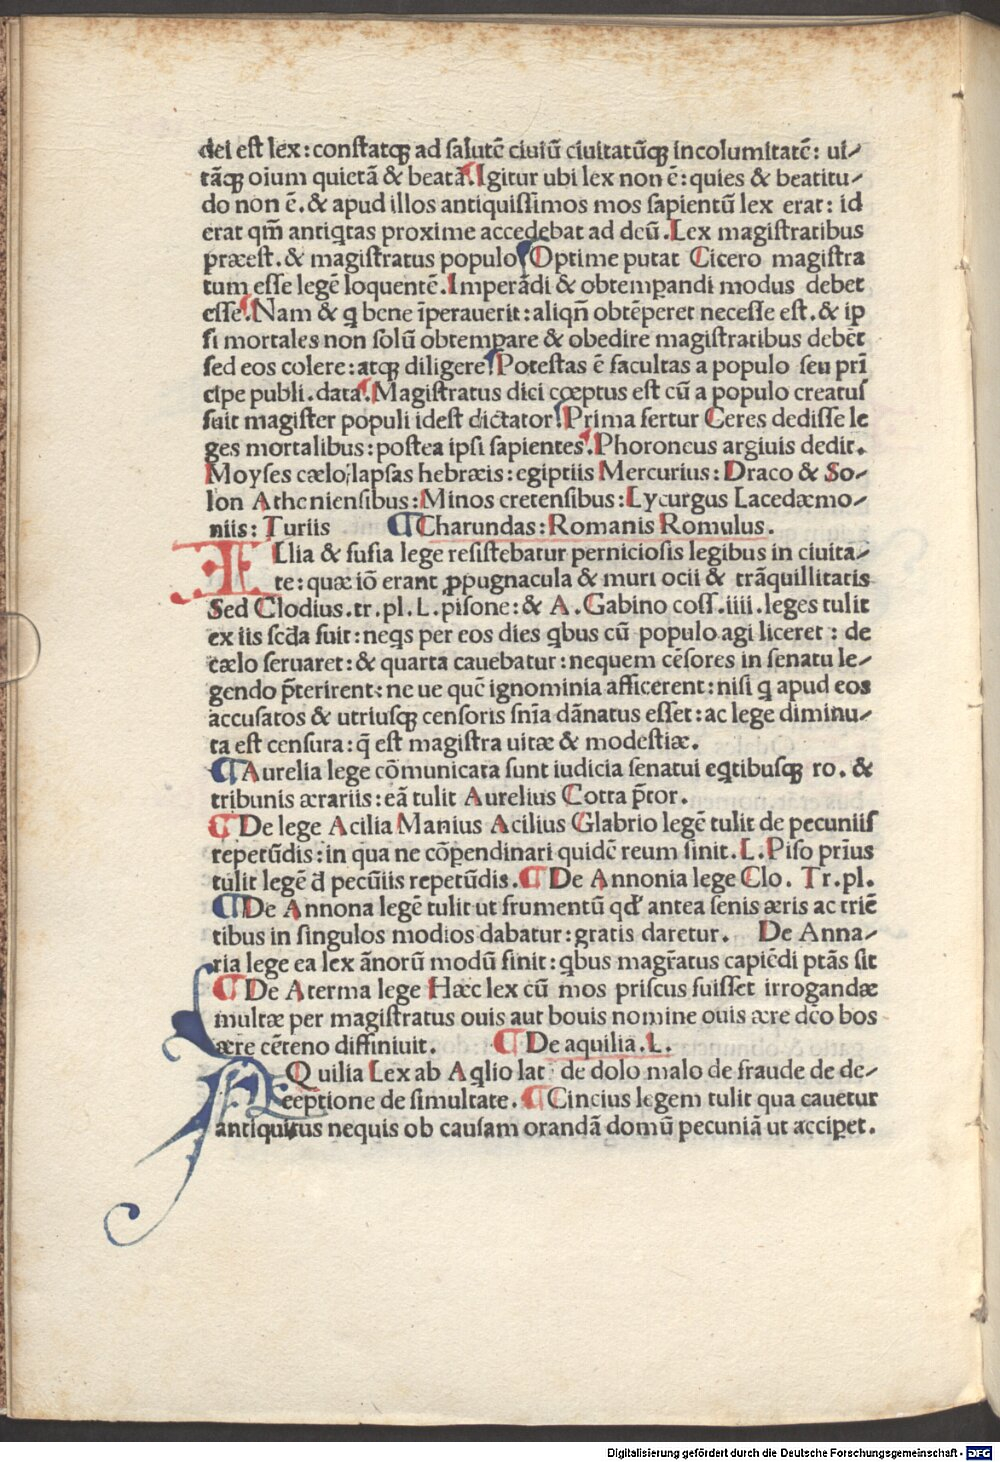 dei est lex: constatqꝫ ad salutē ciuiū ciuitatūqꝫ incolumitatē: ui/
tāqꝫ oium quietā & beatā. Igitur ubi lex non ē: quies & beatitu/
do non ē. & apud illos antiquissimos mos sapientū lex erat: id
erat qm̄ antiqtas proxime accedebat ad deū. Lex magistratibus
præest. & magistratus populo. Optime putat Cicero magistra
tum esse legē loquentē. Imperādi & obtemꝑandi modus debet
esse. Nam & q bene īperauerit: aliqn̄ obtēperet necesse est. & ip
si mortales non solū obtemꝑare & obedire magistratibus debēt
sed eos colere: atqꝫ diligere. Potestas ē facultas a populo seu pri
cipe publi. data. Magistratus dici cœptus est cū a populo creatus
fuit magister populi idest dictator. Prima fertur Ceres dedisse le
ges mortalibus: postea ipsi sapientes. Phoroneus argiuis dedit.
Moyses cælo lapsas hebræis: egiptiis Mercurius: Draco & So/
lon Atheniensibus: Minos cretensibus: Lycurgus Lacedæmo/
niis: Turiis ¶ Charundas: Romanis Romulus.
ELia & fusia lege resistebatur perniciosis legibus in ciuita/
te: quæ iō erant ꝓpugnacula & muri ocii & trāquillitatis
Sed Clodius. tr. pl. L. pisone: & A. Gabino coss. iiii. leges tulit
ex iis scd̄a fuit: neqs per eos dies qbus cū populo agi liceret: de
cælo seruaret: & quarta cauebatur: nequem cēsores in senatu le/
gendo p̄terirent: ne ue quē ignominia afficerent: nisi q apud eos
accusatos & utriusqꝫ censoris sn̄ia dānatus esset: ac lege diminu/
ta est censura: q̄ est magistra uitæ & modestiæ.
¶ Aurelia lege cōmunicata sunt iudicia senatui eqtibusqꝫ ro. &
tribunis ærariis: eā tulit Aurelius Cotta p̄tor.
¶ De lege Acilia Manius Acilius Glabrio legē tulit de pecuniis
repetūdis: in qua ne cōꝑendinari quidē reum sinit. L. Piso prius
tulit legē d̄ pecūiis repetūdis. ¶ De Annonia lege Clo. Tr. pl.
¶ De Annona legē tulit ut frumentū qd̄ antea senis æris ac triē
tibus in singulos modios dabatur: gratis daretur. De Anna/
ria lege ea lex ānorū modū finit: qbus magr̄atus capiēdi ptās sit
¶ De Aterma lege Hæc lex cū mos priscus fuisset irrogandæ
multæ per magistratus ouis aut bouis nomine ouis ære dc̄o bos
ære cēteno diffiniuit. ¶ De aquilia. L.
AQuilia Lex ab Aqlio lat de dolo malo de fraude de de/
ceptione de simultate. ¶ Cincius legem tulit qua cauetur
antiquitus nequis ob causam orandā domū pecuniā ut acciꝑet.
Digitalisierung gefördert durch die Deutsche Forschungsgemeinschaft - DFG